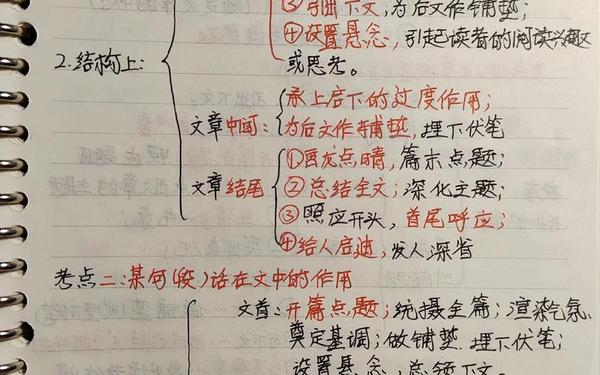 ③引出下文,为后文作铺垫;
④设置悬念,引起读者的阅读兴趣
2.结构上:
或思考。
承上启下的过度作用;
文章中间:为后文作铺垫,埋下伏笔
①画龙点睛,篇末点题;
文章结尾 ②总结全文;深化主题;
③照应开头,首尾呼应;
④给人启迪,发人深省
考点二:某句(段)话在文中的作用
文首:开篇点题;统摄全篇;渲染气氛、
奠定基调;做铺垫、埋下伏笔;
设置悬念,总领下文。